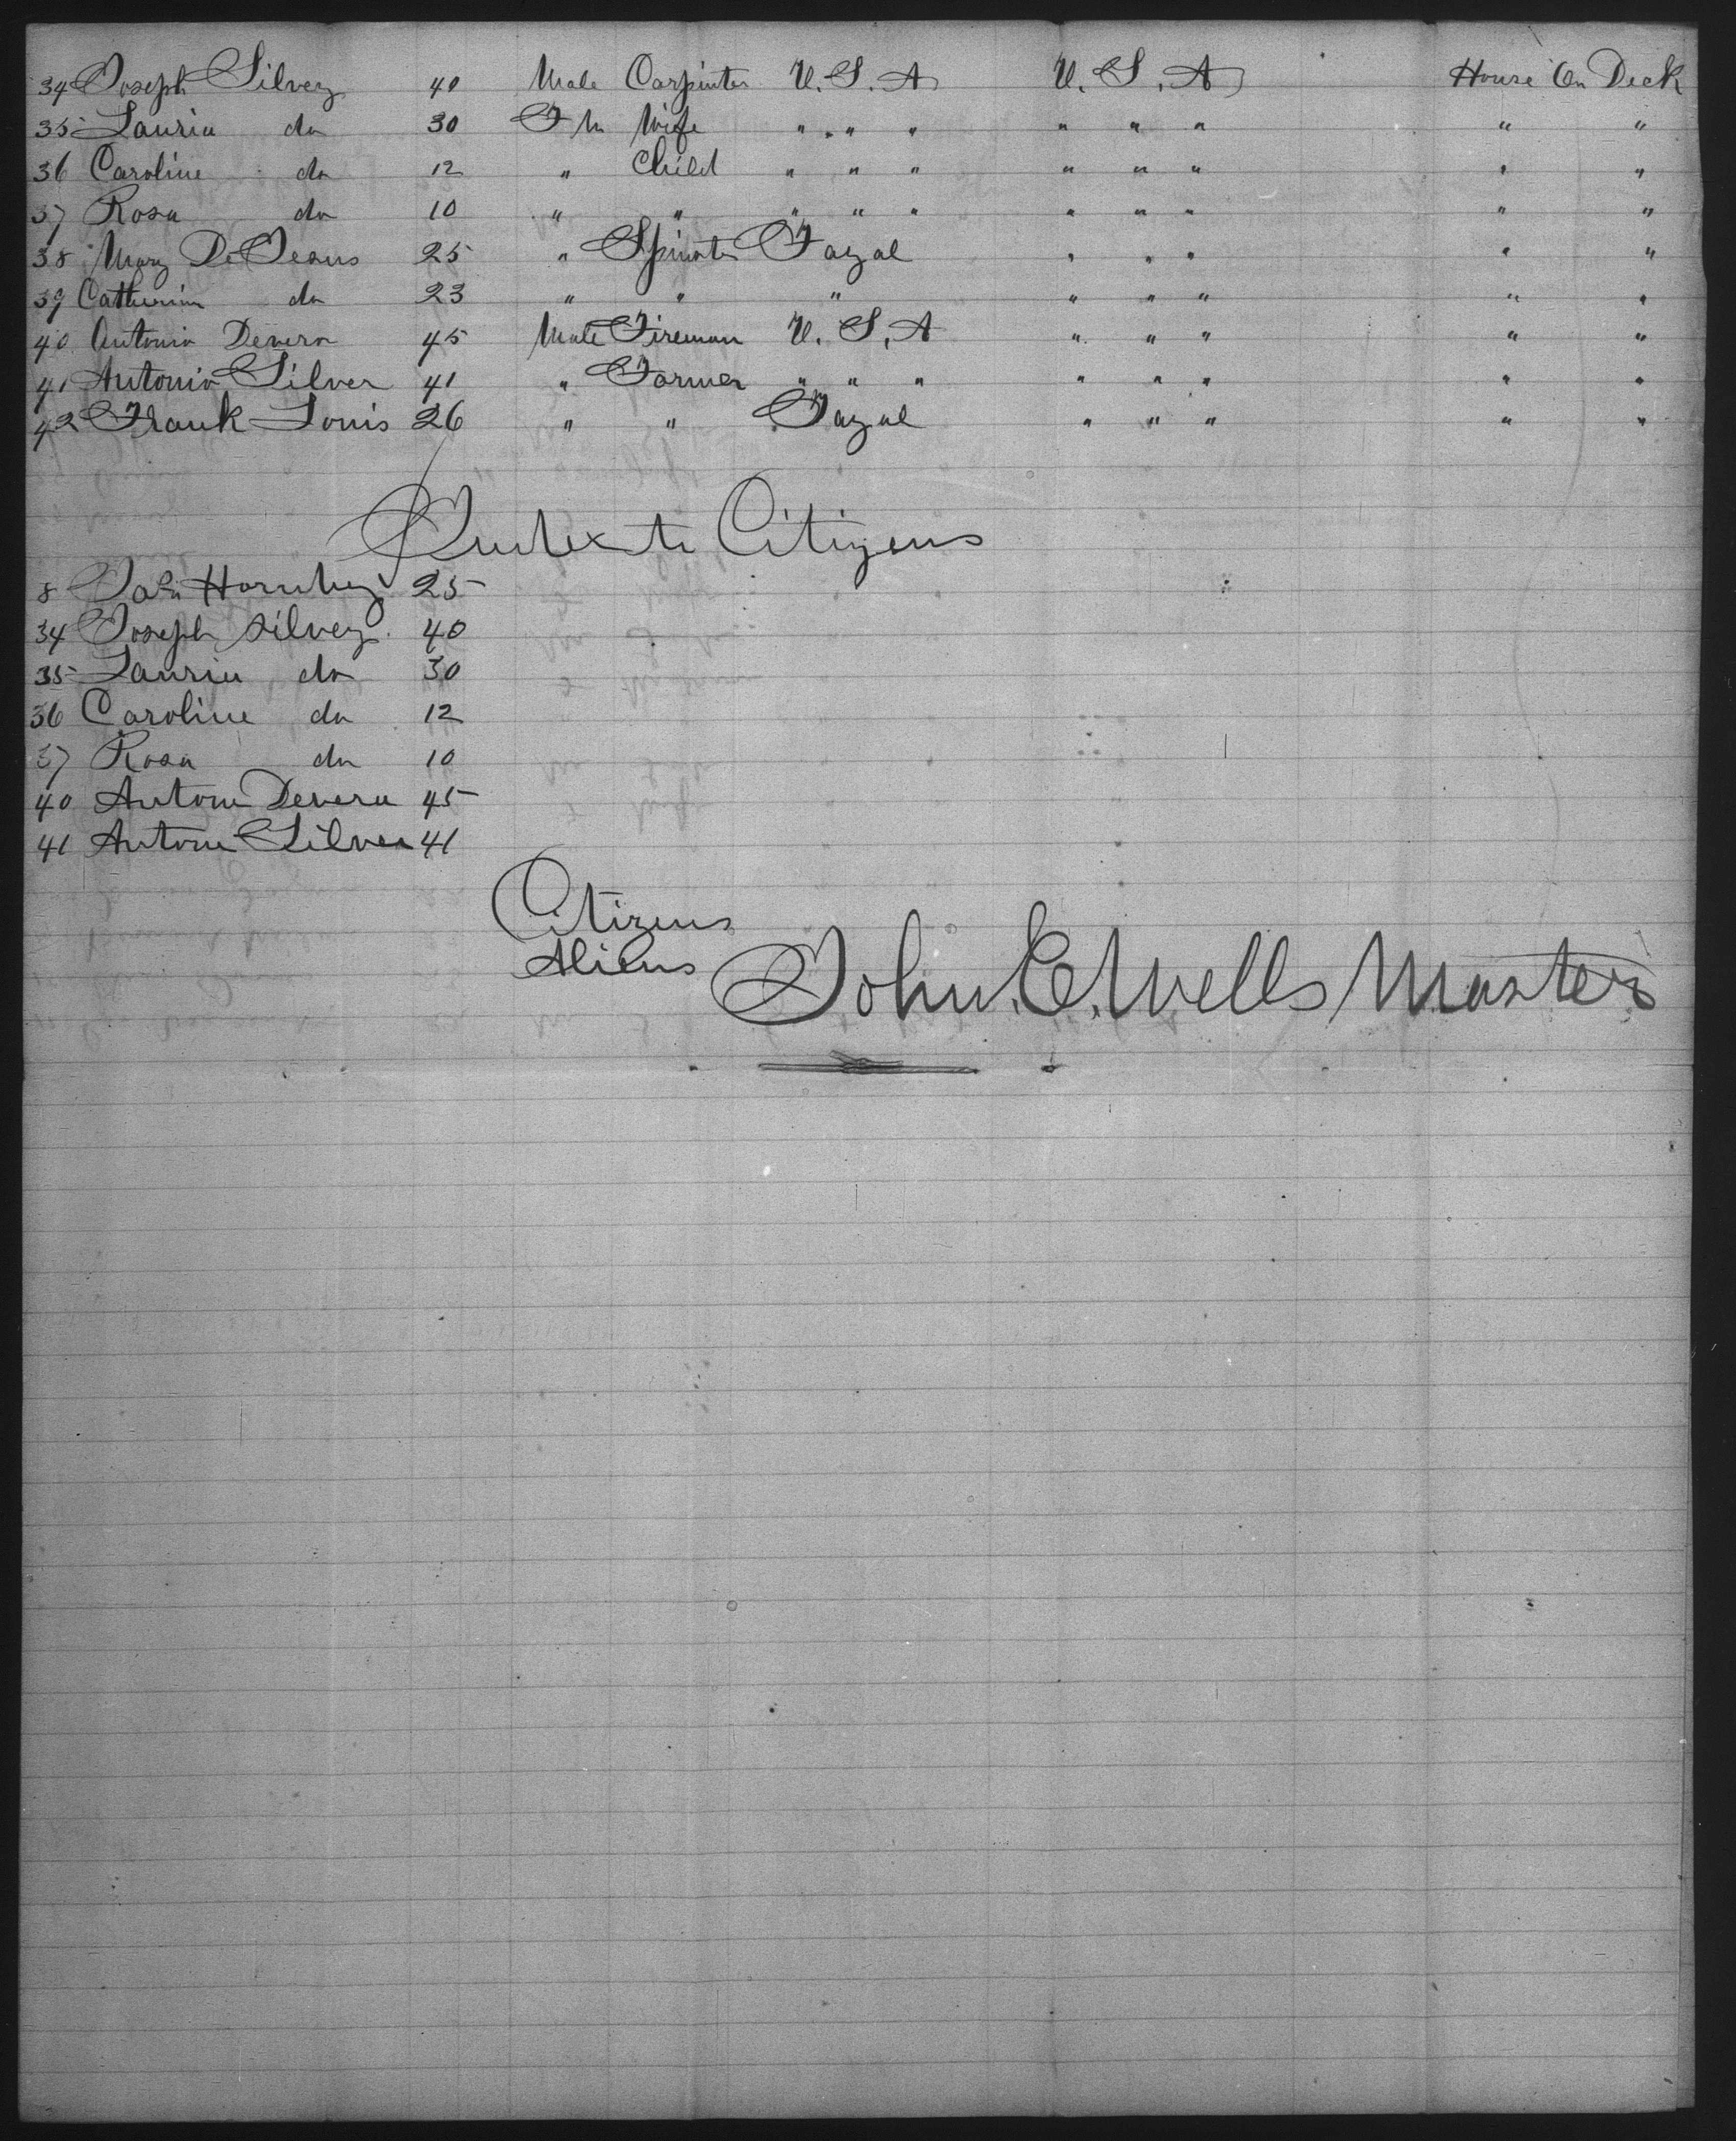 34 Joseph Silvey 40 Male Carpinter U. S. A U. S. A House On Deck
35 Lauria do 30 F m Wife " " " " " " " "
36 Caroline do 12 " Child " " " " " " " "
37 Rosa do 10 " " " " " " " " " "
38 Mary De Jesus 25 " Spinster Fayal " " " " "
39 Catherine do 23 " " " " " " " "
40 Antonio Devera 45 Male Fireman U. S. A " " " " "
41 Antonio Silver 41 " Farmer " " " " " " " "
42 Frank Louis 26 " " Fayal " " " " "
Index to Citizens
8 John 25
34 Joseph Silvey 40
35 Lauria do 30
36 Caroline do 12
37 Rosa do 10
40 Antone Devera 45
41 Antone Silver 41
Citizens
Aliens
John. E. Wells Master